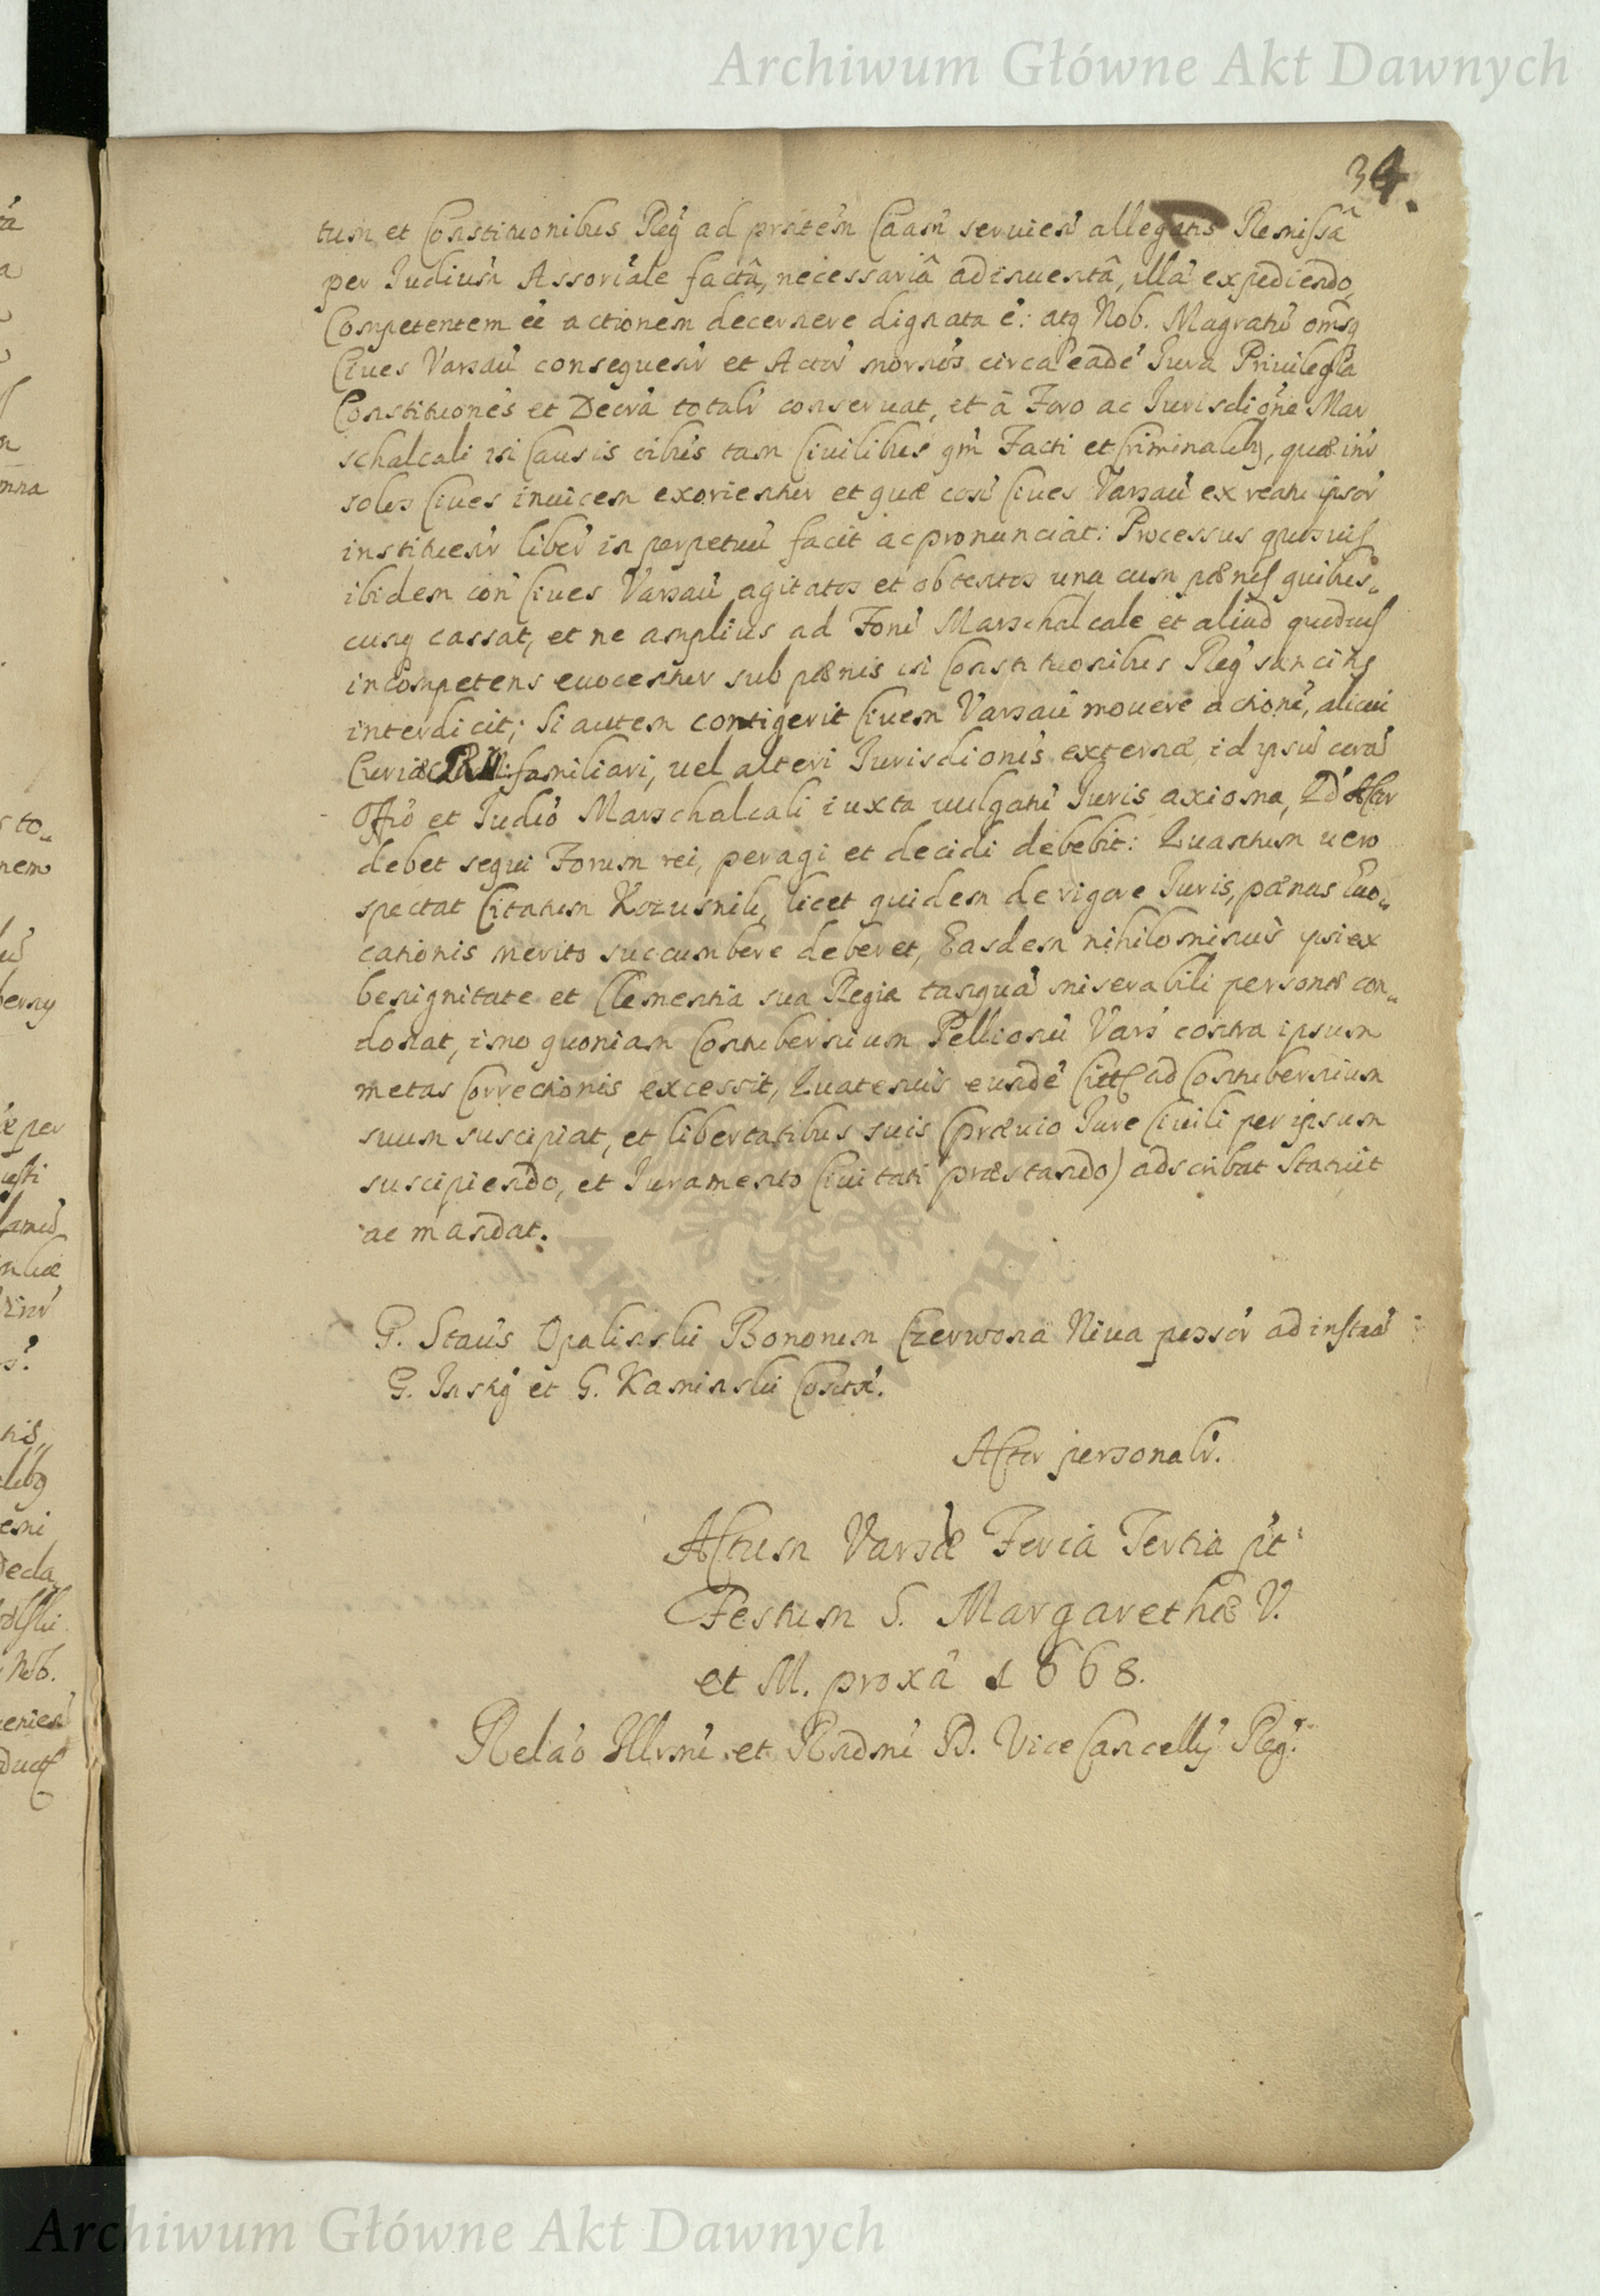 Archiwum Główne Akt Dawnych
34.
tum et Constituonibus Regº ad pratem Caasm seruien allegatis Remissâ
per Iudium Assoriale factâ, necessariâ adinuentâ, illa expediendo,
Competentem eē actionem decernere dignata ē: atq Nob. Magratū omsq
Ciues Varsau consequenr et Actor circa eade Iura Priuilegia
Constituones et Decra totalr conseruat, et â Foro ac Iurisdione Mar
schalcali in Causis tam Ciuilibus qm Facti et Criminalib, quæ inr
solos Ciues inuicem exorientur et quæ con Ciues Varsau ex reatu ipsor
instituenr liber in perpetuū facit ac pronunciat: Processus quosuis
ibidem con Ciues Varsau agitatos et obtentos una cum pœnis quibus„
cunq cassat, et ne amplius ad Foru Marschalcale et aliud quoduis
incompetens euocentur sub pœnis in Constituonibus Reg sancitis
interdicit; Si autem contigerit Ciuem Varsau mouere actione, alicui
Curiæ familiari, uel alteri Iurisdionis externæ, id ipsū cora
Offio et Iudio Marschalcali iuxta uulgatū Iuris axioma, Qd Actor
debet sequi Forum rei, peragi et decidi debebit: Quantum uero
spectat Citatum licet quidem de rigore Iuris, pœnas Euo„
cationis merito succumbere deberet, Easdem nihilominus ipsi ex
benignitate et Clementia sua Regia tanquâ miserabili personæ con„
donat, imo quoniam Contubernium Pellionū Vars contra ipsum
metas Correctionis excessit, Quatenus eunde Citt ad Contubernium
suum suscipiat, et libertatibus suis (præuio Iure Ciuili per ipsum
suscipiendo, et Iuramento Ciuitati præstando) adscribat Statuit
ac mandat.
G. Staus Opalinski Bonorum Czerwona Niua possor ad instaa
G. Insty et G. Kaminski Contr.
Actor personalr.
Actum Varsæ Feria Tertia pt
Festum S. Margarethæ V.
et M. proxa 1668.
Relao Illrmi et Rndmi D. Vice Cancellÿ Reg.
Archiwum Główne Akt Dawnych